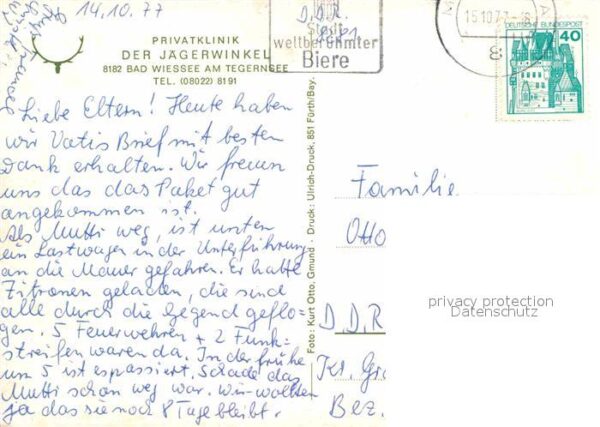 14.10.77
PRIVATKLINIK
DER JÄGERWINKEL
8182 BAD WIESSEE AM TEGERNSEE
TEL. (08022) 81 91
Liebe Eltern! Heute haben
wir Vatis Brief mit besten
Dank erhalten. Wir freuen
uns das das Paket gut
angekommen ist.
Als Mutti weg, ist unten
ein Lastwagen in der Unterführung
an die Mauer gefahren. Er hatte
Zitronen geladen, die sind
alle durch die Gegend geflo-
gen. 5 Feuerwehren + 2 Funk-
streifen waren da. In der frühe
um 5 ist es passiert. Schade das
Mutti schon weg war. Wir wollten
ja das sie noch 8 Tage bleibt.
Foto: Kurt Otto, Gmund · Druck: Ulrich-Druck, 851 Fürth/Bay.
D.D.R.
Stadt
weltberühmter
Biere
15.10.77
8
DEUTSCHE BUNDESPOST
40
Familie
Otto
D.D.R
Kr. Gr
Bez.
privacy protection
Datenschutz